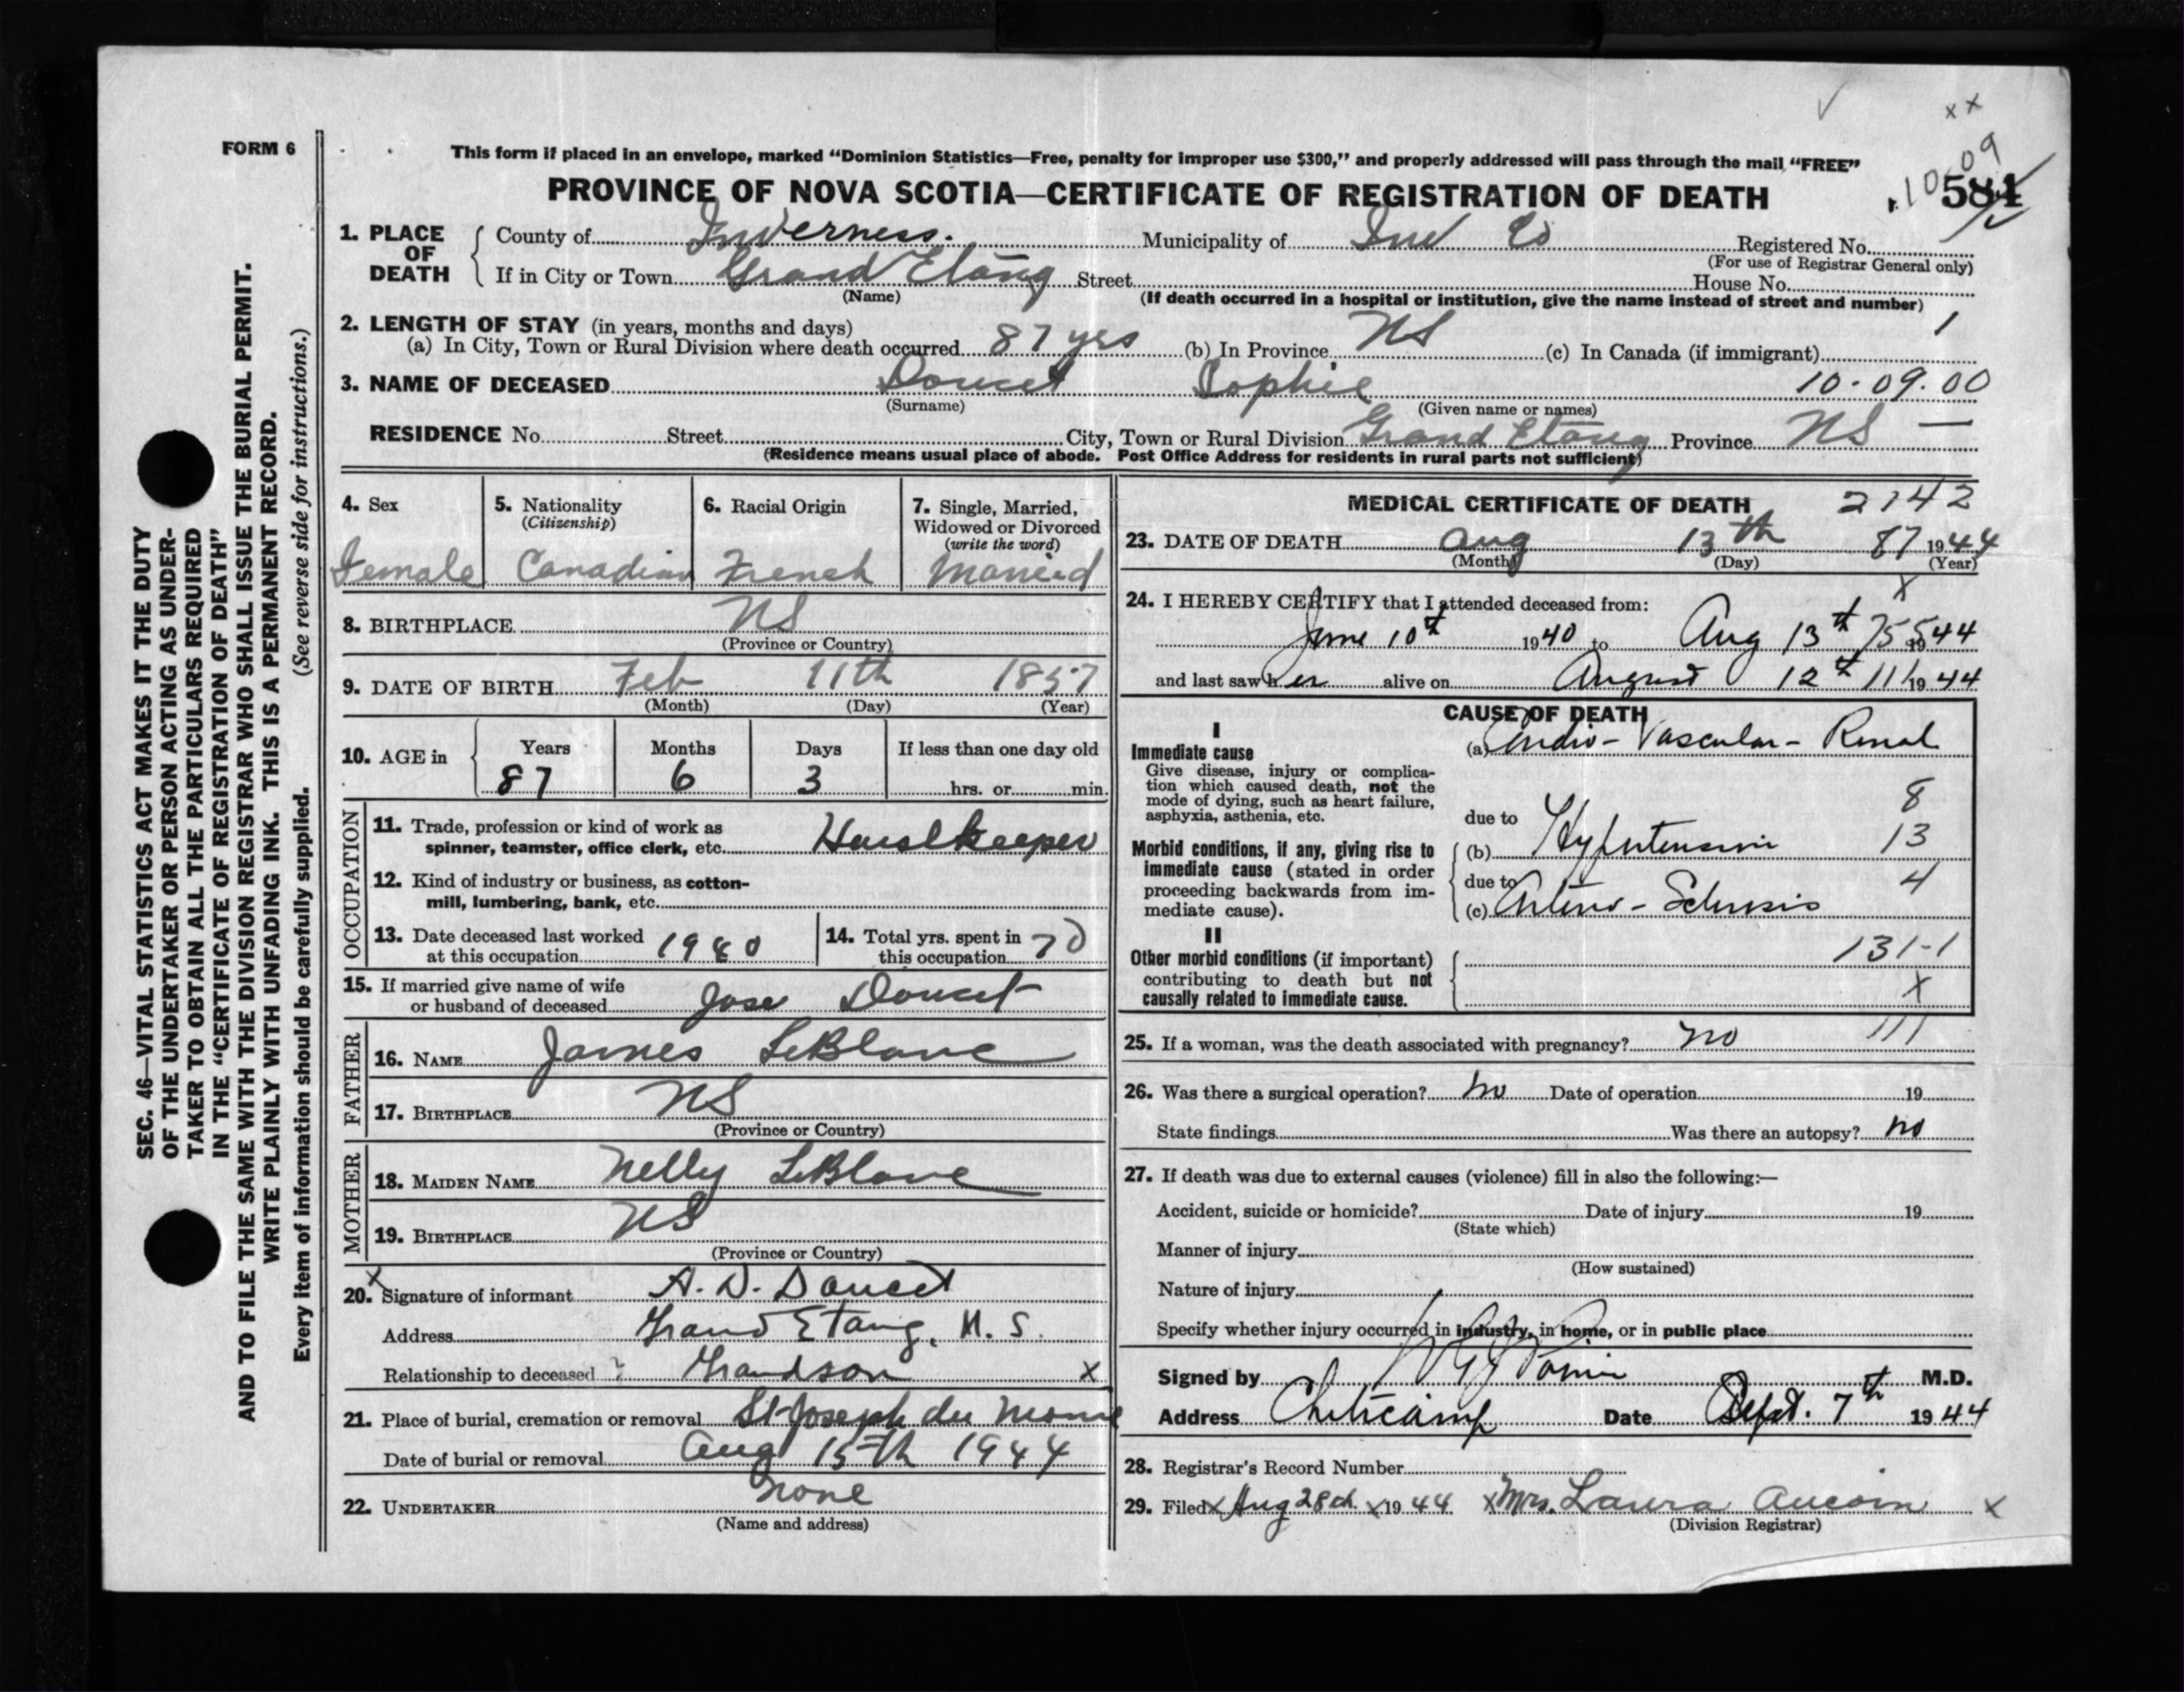 FORM 6
This form if placed in an envelope, marked "Dominion Statistics—Free, penalty for improper use $300," and properly addressed will pass through the mail "FREE"
PROVINCE OF NOVA SCOTIA—CERTIFICATE OF REGISTRATION OF DEATH
xx
10-09
584
1. PLACE OF DEATH
County of Inverness. Municipality of Inv Co Registered No.
(For use of Registrar General only)
If in City or Town Grand Etang Street House No.
(Name) (If death occurred in a hospital or institution, give the name instead of street and number)
2. LENGTH OF STAY (in years, months and days)
(a) In City, Town or Rural Division where death occurred 87 yrs (b) In Province NS (c) In Canada (if immigrant) 1
3. NAME OF DECEASED Doucet Sophie 10-09.00
(Surname) (Given name or names)
RESIDENCE No. Street City, Town or Rural Division Grand Etang Province NS —
(Residence means usual place of abode. Post Office Address for residents in rural parts not sufficient)
4. Sex
Female
5. Nationality
(Citizenship)
Canadian
6. Racial Origin
French
7. Single, Married, Widowed or Divorced
(write the word)
Married
8. BIRTHPLACE NS
(Province or Country)
9. DATE OF BIRTH Feb 11th 1857
(Month) (Day) (Year)
10. AGE in Years Months Days If less than one day old
87 6 3 hrs. or min.
OCCUPATION
11. Trade, profession or kind of work as
spinner, teamster, office clerk, etc. Houslkeeper
12. Kind of industry or business, as cotton-
mill, lumbering, bank, etc.
13. Date deceased last worked
at this occupation 1940
14. Total yrs. spent in
this occupation 70
15. If married give name of wife
or husband of deceased Jose Doucet
FATHER
16. NAME James LeBlanc
17. BIRTHPLACE NS
(Province or Country)
MOTHER
18. MAIDEN NAME Nelly LeBlanc
19. BIRTHPLACE NS
(Province or Country)
x
20. Signature of informant A. D. Doucet
Address Grand Etang, N. S.
Relationship to deceased ? Grandson x
21. Place of burial, cremation or removal St Joseph du Moine
Date of burial or removal Aug 15th 1944
22. UNDERTAKER none
(Name and address)
MEDICAL CERTIFICATE OF DEATH 2142
23. DATE OF DEATH Aug 13th 87 1944
(Month) (Day) (Year)
x
24. I HEREBY CERTIFY that I attended deceased from:
June 10th 1940 to Aug 13th 75 5 1944
and last saw her alive on August 12th 111 1944
CAUSE OF DEATH
I
Immediate cause
Give disease, injury or complica-
tion which caused death, not the
mode of dying, such as heart failure,
asphyxia, asthenia, etc.
(a) Cardio-Vascular-Renal
8
due to
Morbid conditions, if any, giving rise to
immediate cause (stated in order
proceeding backwards from im-
mediate cause).
(b) Hypertension 13
due to 4
(c) Arterio-Sclerosis
II
Other morbid conditions (if important)
contributing to death but not
causally related to immediate cause.
131-1
x
25. If a woman, was the death associated with pregnancy? no 111
26. Was there a surgical operation? no Date of operation 19
State findings Was there an autopsy? no
27. If death was due to external causes (violence) fill in also the following:—
Accident, suicide or homicide? Date of injury 19
(State which)
Manner of injury
(How sustained)
Nature of injury
Specify whether injury occurred in industry, in home, or in public place
Signed by M.D.
Address Cheticamp Date Sept. 7th 1944
28. Registrar's Record Number
29. Filed x Aug 28th x 1944 x Mrs. Laura Aucoin x
(Division Registrar)
SEC. 46—VITAL STATISTICS ACT MAKES IT THE DUTY
OF THE UNDERTAKER OR PERSON ACTING AS UNDER-
TAKER TO OBTAIN ALL THE PARTICULARS REQUIRED
IN THE "CERTIFICATE OF REGISTRATION OF DEATH"
AND TO FILE THE SAME WITH THE DIVISION REGISTRAR WHO SHALL ISSUE THE BURIAL PERMIT.
WRITE PLAINLY WITH UNFADING INK. THIS IS A PERMANENT RECORD.
Every item of information should be carefully supplied. (See reverse side for instructions.)